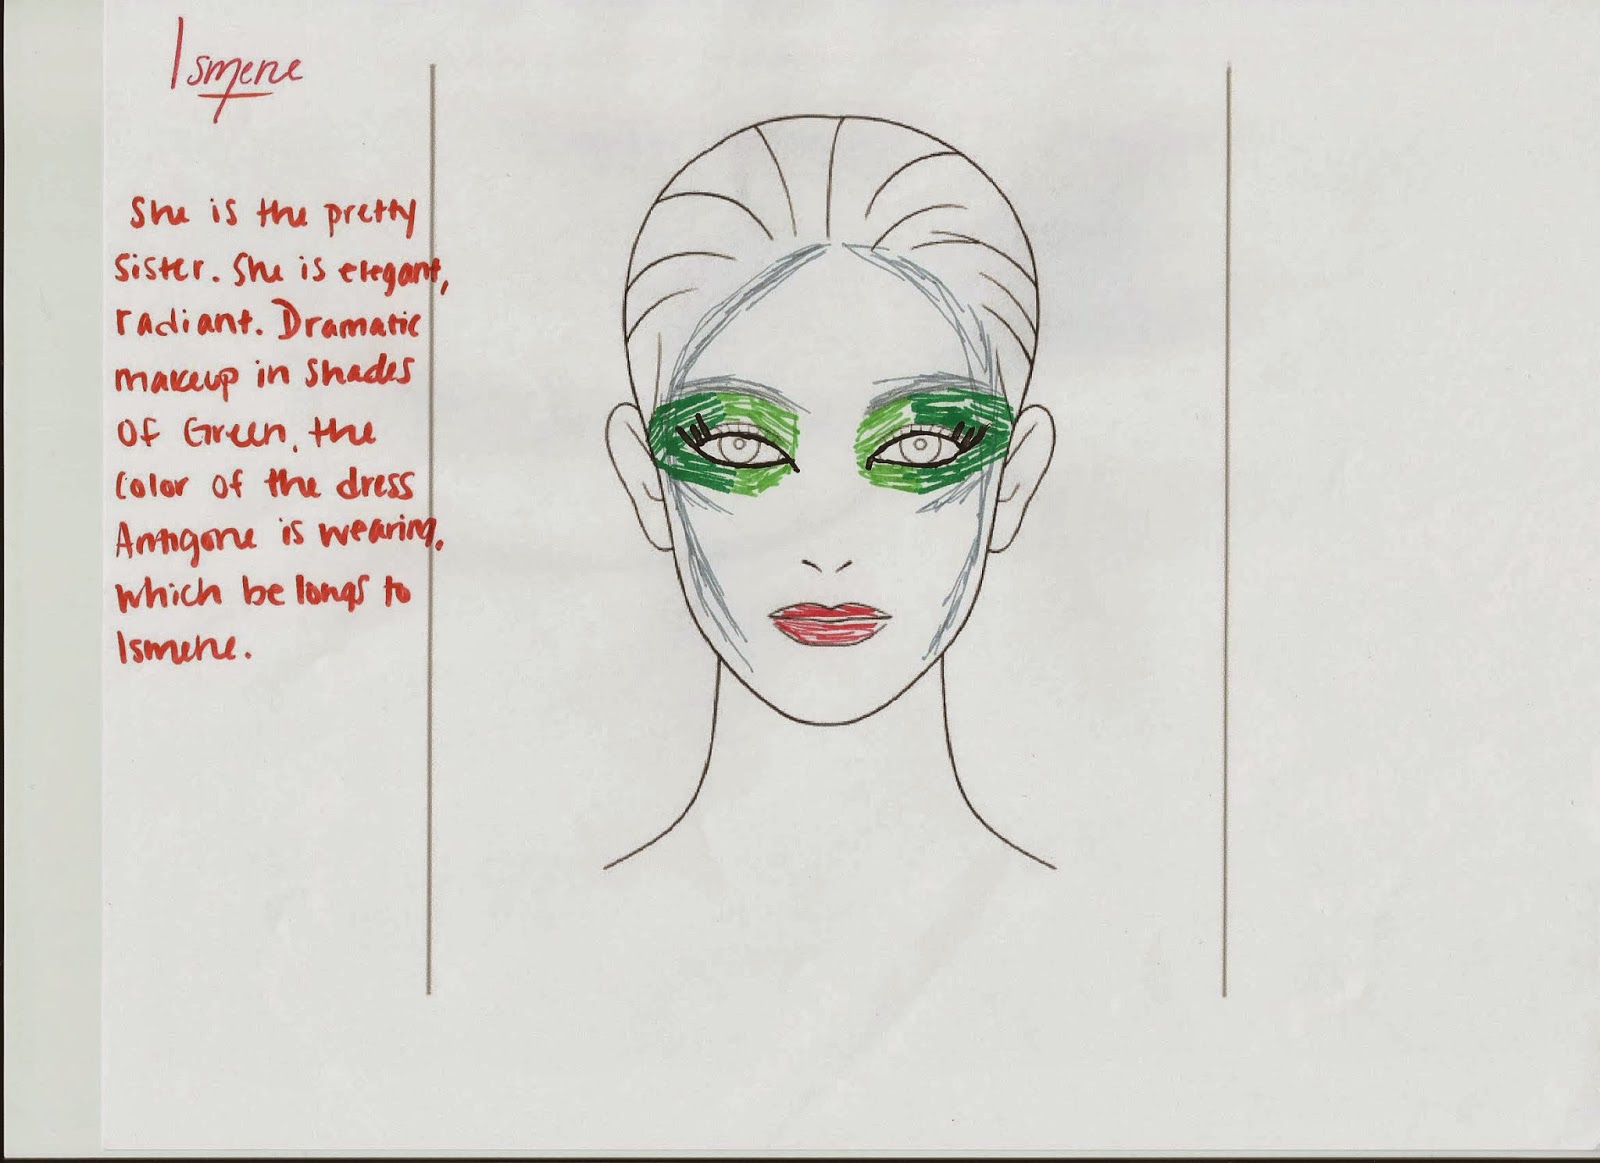 Ismene
She is the pretty
sister. She is elegant,
radiant. Dramatic
makeup in shades
of Green, the
color of the dress
Antigone is wearing,
which belongs to
Ismene.